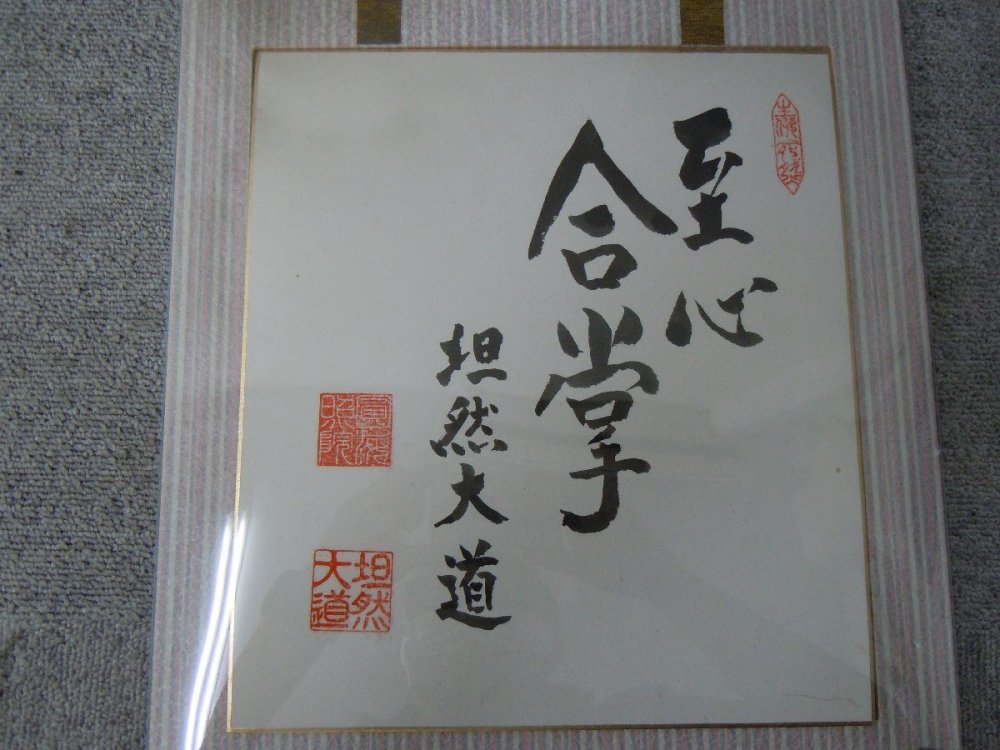 至心
合掌
坦然大道
坦然
大道